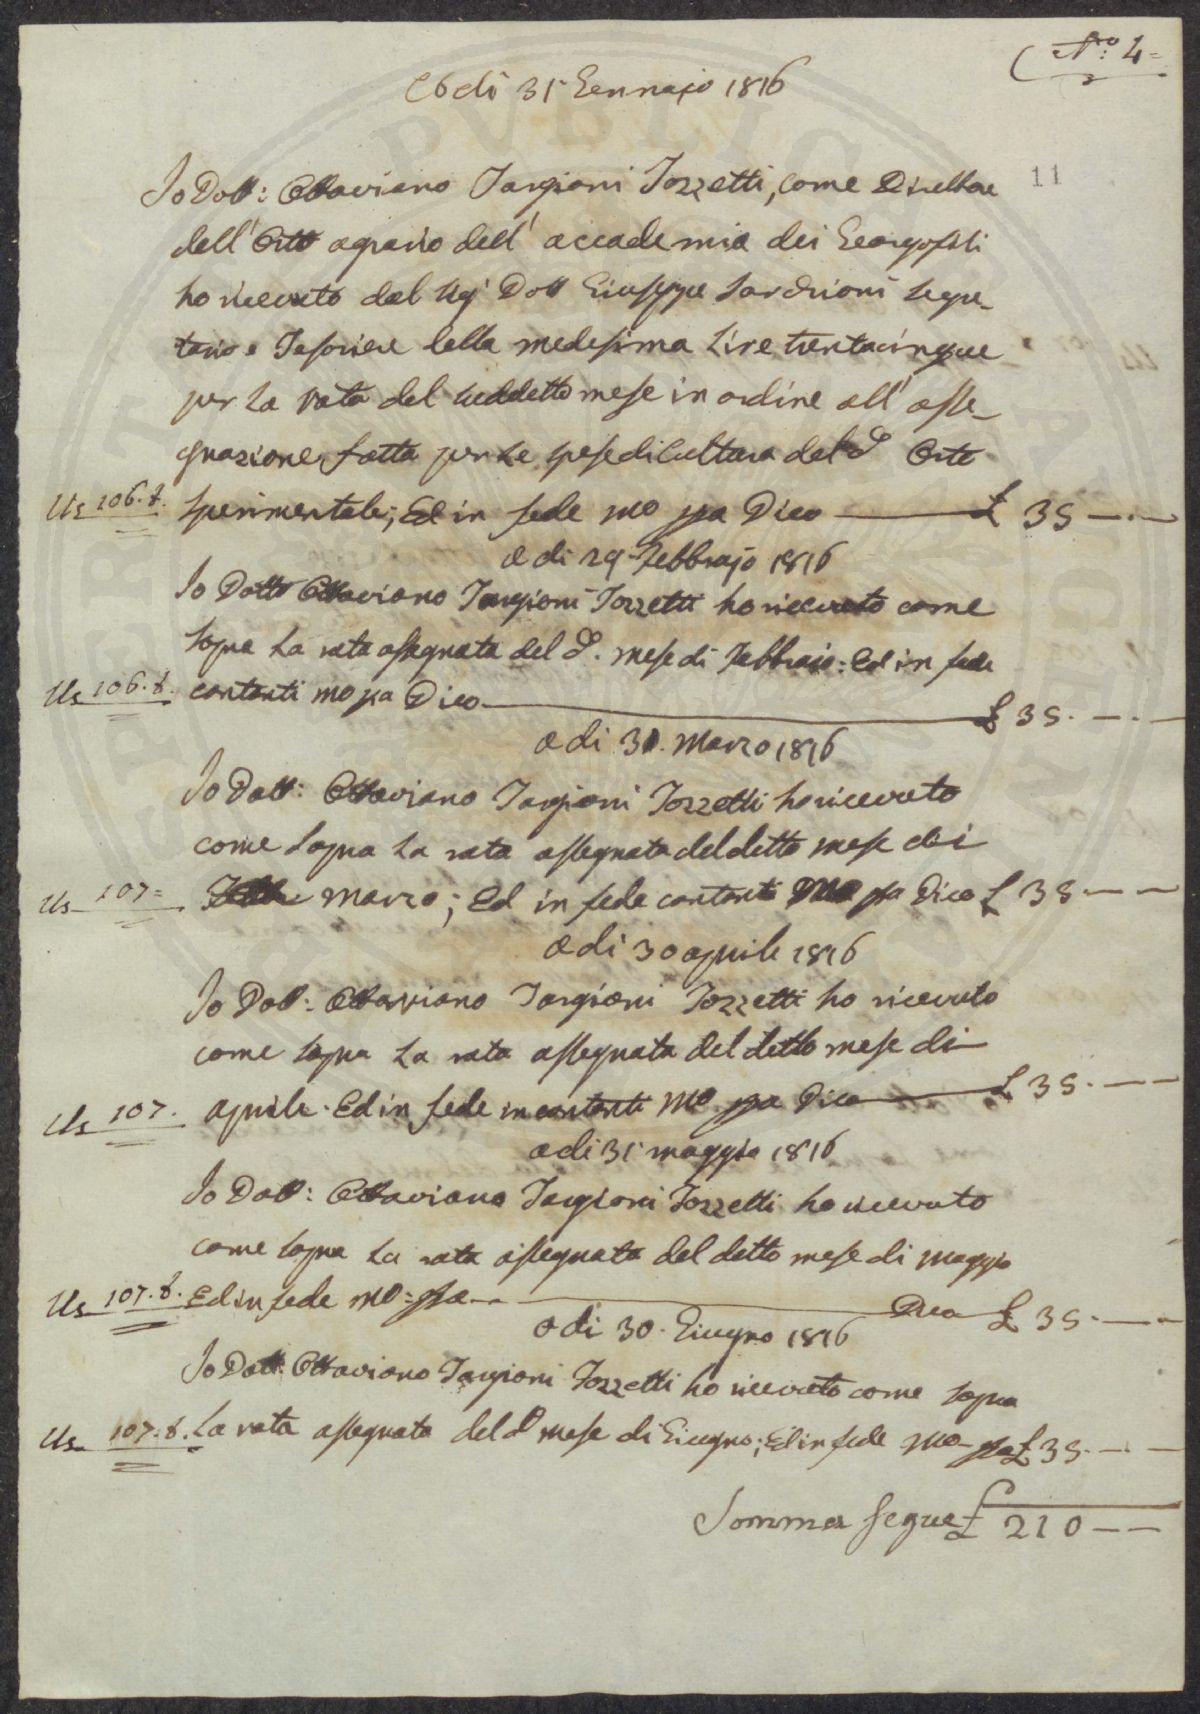 N.o 4=
A di 31 Gennajo 1816
11
Io Dott: Ottaviano Targioni Tozzetti, come Direttore
dell'Orto agrario dell'accademia dei Georgofili
ho ricevuto dal Sig' Dott Giuseppe Sarchiani Segre-
tario e Tesoriere della medesima Lire trentacinque
per la rata del suddetto mese in ordine all'asse-
gnazione fatta per le spese di Cultura del d.o Orto
Us 106.t. Sperimentale; Ed in fede mo ppa Dico £ 35 —.—
a di 29 Febbrajo 1816
Io Dotto Ottaviano Targioni Tozzetti ho ricevuto come
sopra la rata assegnata del d.o mese di Febbraio: Ed in fede
Us 106.t. contanti mo pa Dico £ 35. — . —
a di 31. Marzo 1816
Io Dott: Ottaviano Targioni Tozzetti ho ricevuto
come sopra la rata assegnata del detto mese di
Us 107= marzo; Ed in fede contanti mo pa Dico £ 35 — —
a di 30 aprile 1816
Io Dott: Ottaviano Targioni Tozzetti ho ricevuto
come sopra la rata assegnata del detto mese di
Us 107. aprile. Ed in fede in contanti mo ppa Dico £ 35. — —
a di 31 maggio 1816
Io Dott: Ottaviano Targioni Tozzetti ho ricevuto
come sopra la rata assegnata del detto mese di maggio
Us 107.t. Ed in fede mo: ppa Dico £ 35. — —
a di 30. Giugno 1816
Io Dott: Ottaviano Targioni Tozzetti ho ricevuto come sopra
Us 107.t. La rata assegnata del d.o mese di Giugno; Ed in fede mo ppa £ 35. — —
Somma segue £ 210 — —